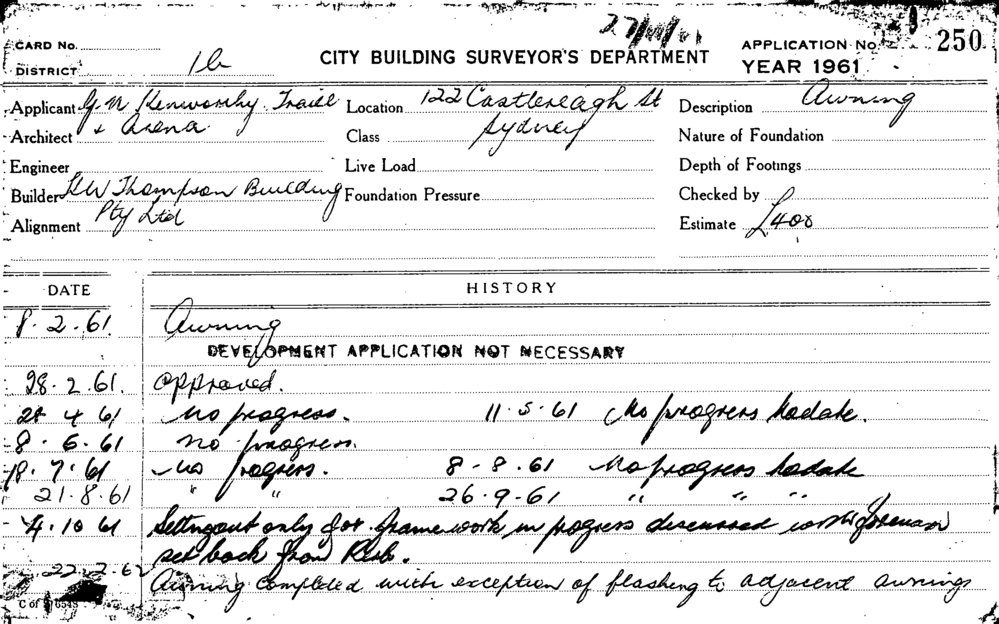 CARD No.
DISTRICT 1b
CITY BUILDING SURVEYOR'S DEPARTMENT
APPLICATION No. 250
YEAR 1961
Applicant G. M Kenworthy Traill & Arena
Location 122 Castlereagh St Sydney
Description Awning
Architect
Class
Nature of Foundation
Engineer
Live Load
Depth of Footings
Builder HW Thompson Building Pty Ltd
Foundation Pressure
Checked by
Alignment
Estimate £400
DATE HISTORY
8.2.61 Awning
DEVELOPMENT APPLICATION NOT NECESSARY
28.2.61. approved.
4 61 No progress. 11.5.61 No progress to date.
8.6.61 no progress.
18.7.61 No progress. 8-8.61 No progress to date
21.8.61 " " 26.9-61 " " "
4.10 61 Setting out only for framework in progress discussed with foreman
set back from Kerb.
22.2.62 Awning completed with exception of flashing to adjacent awnings
C of S